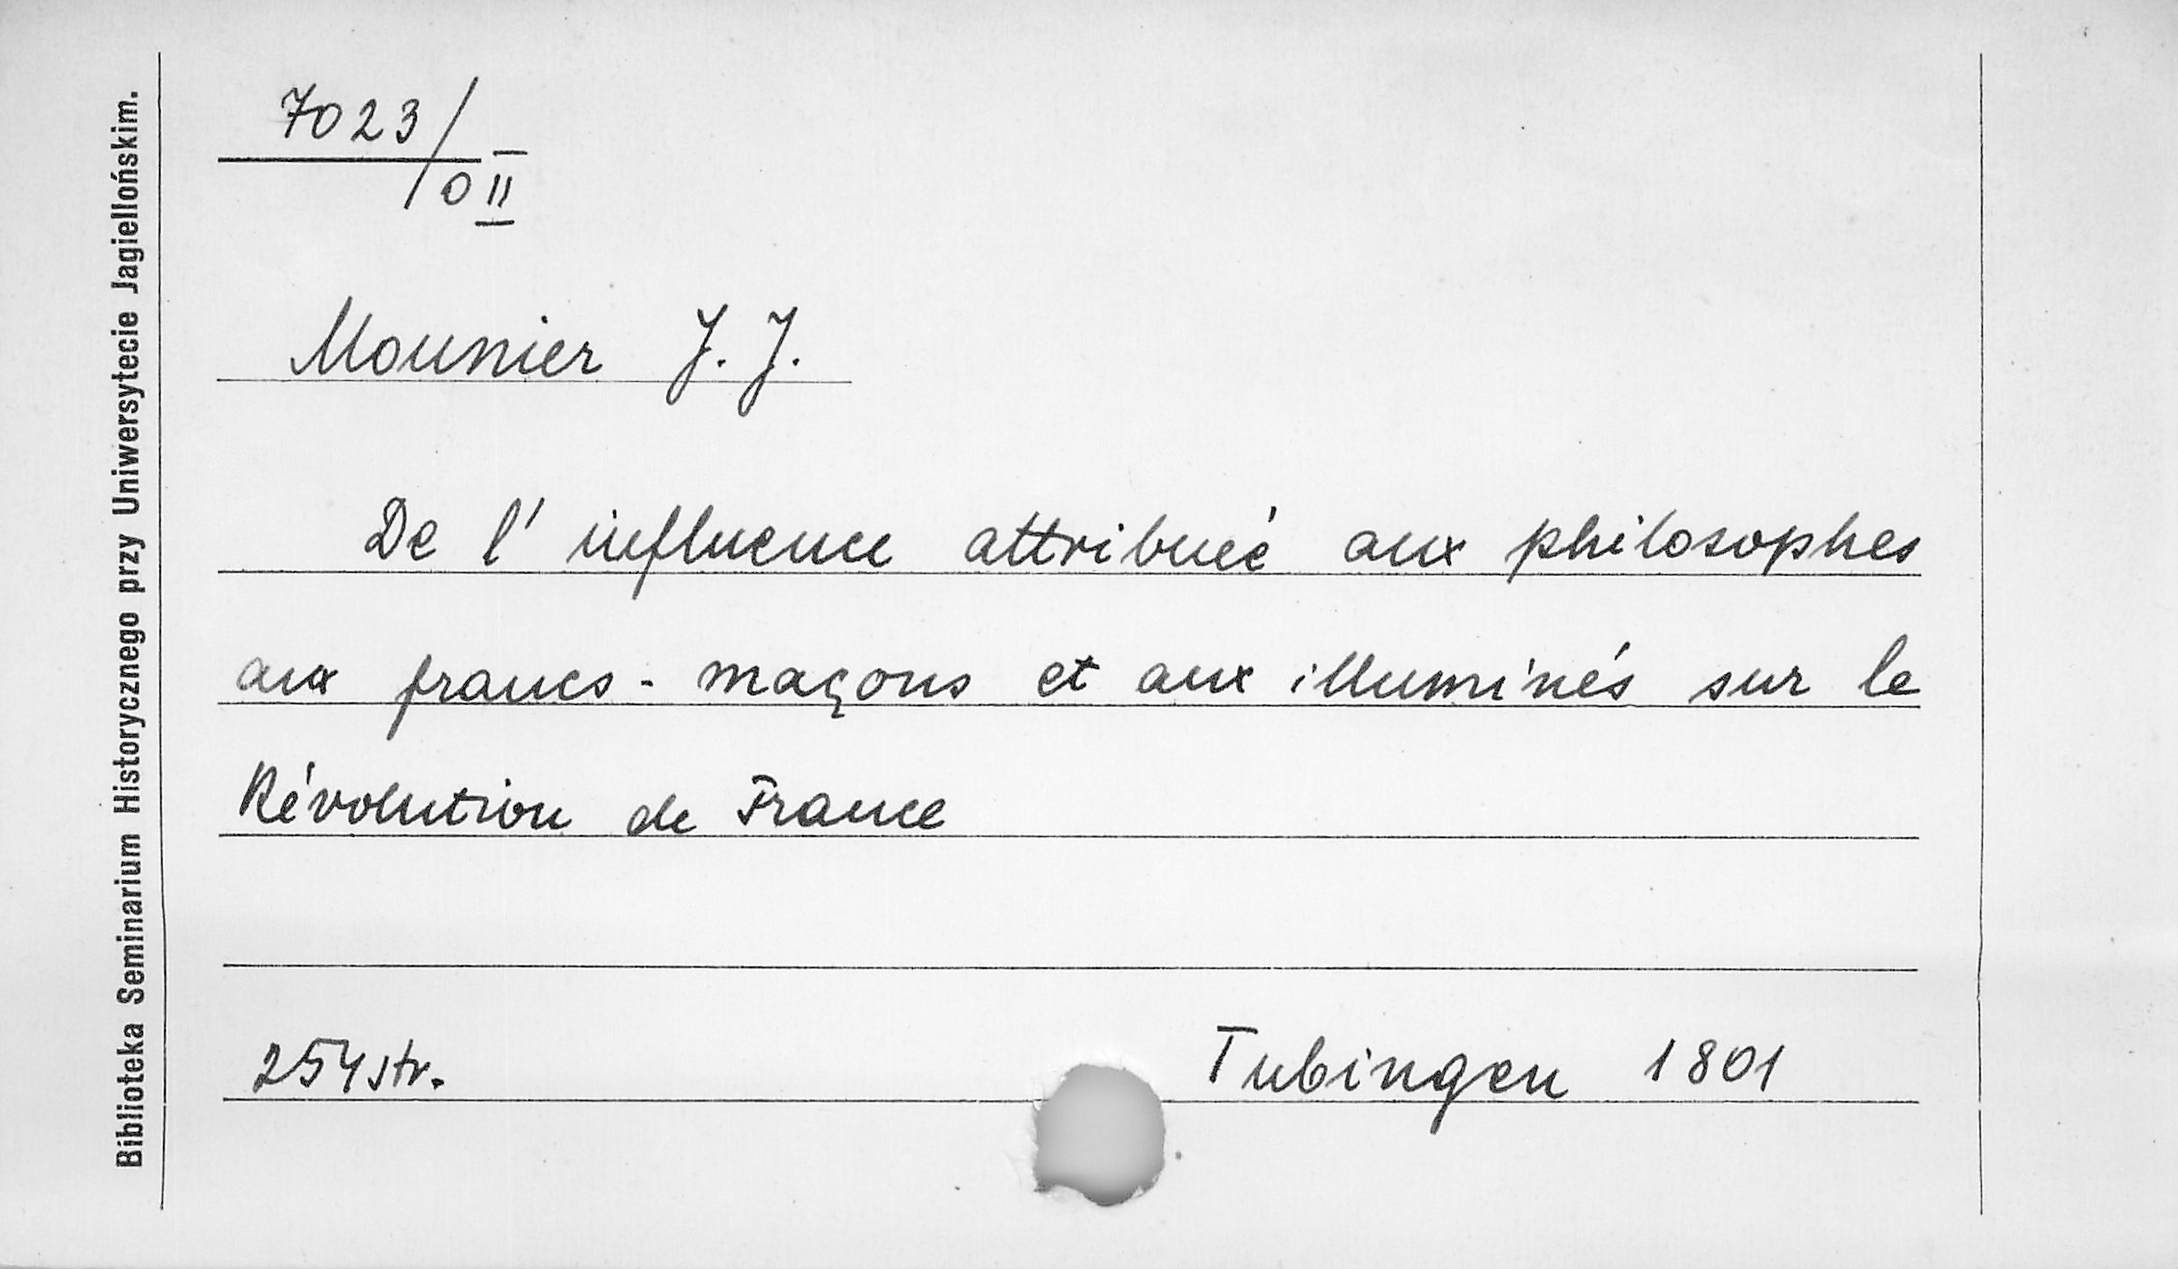 Biblioteka Seminarium Historycznego przy Uniwersytecie Jagiellońskim.
7023/
O II
Mounier J. J.
De l' influence attribueé aux philosophes
aux francs-maçons et aux illuminés sur le
Révolution de France
254 str.
Tubingen 1801